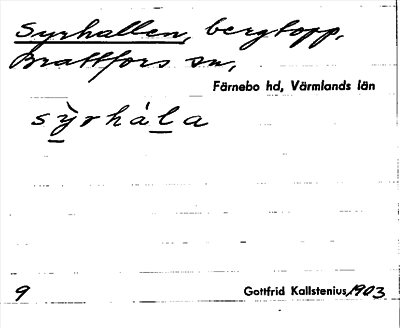 Syrhallen, bergtopp,
Brattfors sn,
Färnebo hd, Värmlands län
sỳ̠rhál̠a
9
Gottfrid Kallstenius, 1903